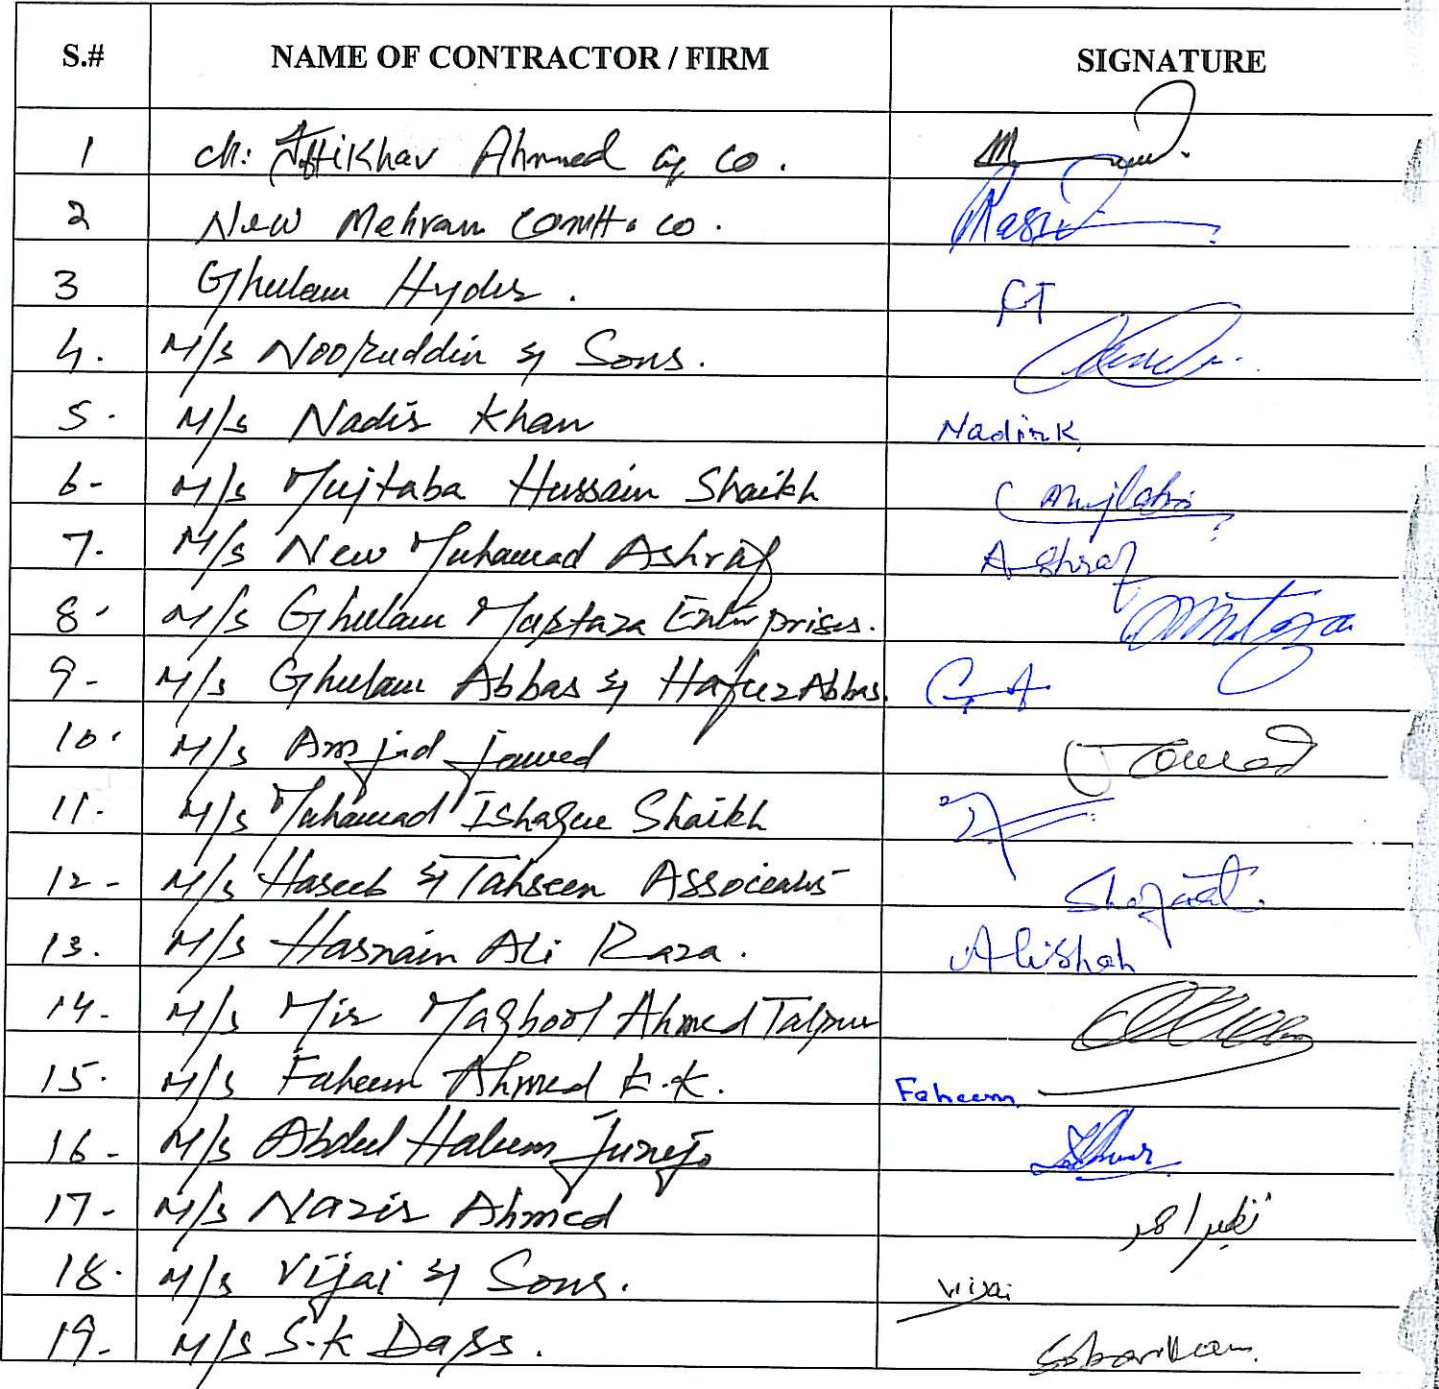 S.# NAME OF CONTRACTOR / FIRM SIGNATURE
1 Ch: Iftikhar Ahmed & co.
2 New Mehran Constt. co.
3 Ghulam Hyder.
4. M/s Nooruddin & Sons.
5. M/s Nadir Khan Nadir K
6- M/s Mujtaba Hussain Shaikh Mujtaba
7. M/s New Muhammad Ashraf Ashraf
8. M/s Ghulam Murtaza Enterprises.
9- M/s Ghulam Abbas & Hafeez Abbas.
10. M/s Amjid Jawed Jawed
11. M/s Muhammad Ishaque Shaikh
12- M/s Haseeb & Tahseen Associates
13. M/s Hasnain Ali Raza. Ali Shah
14. M/s Mir Maqbool Ahmed Talpur
15. M/s Faheem Ahmed K.K. Faheem
16- M/s Abdul Haleem Junejo
17- M/s Nazir Ahmed نظیر احمد
18. M/s Vijai & Sons. Vijai
19- M/s S.K Dass.